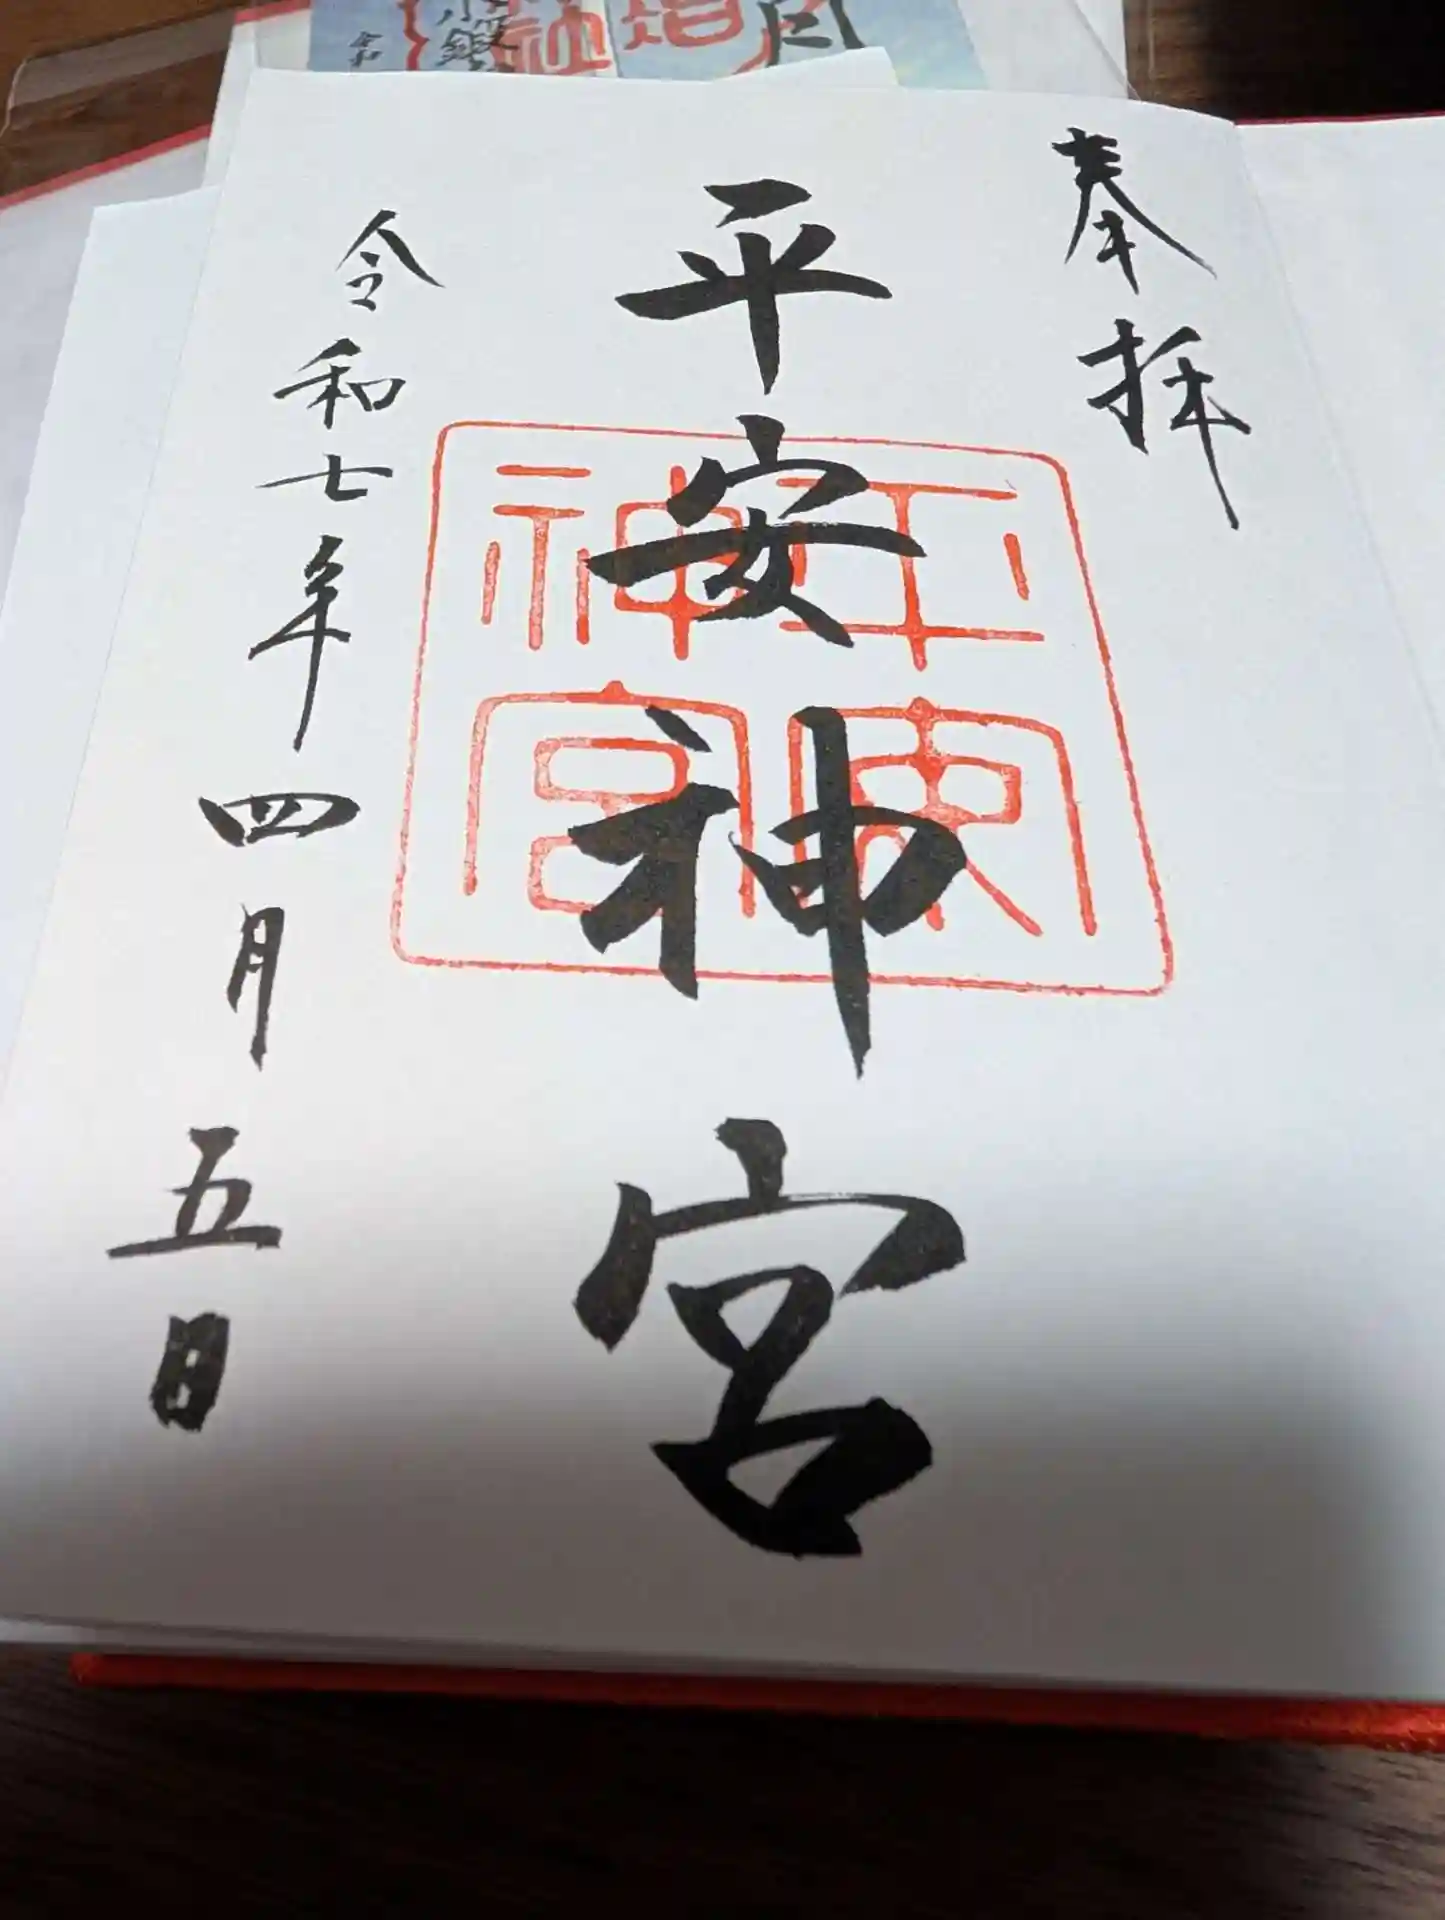 奉拝
平安神宮
平安
神宮
令和七年四月五日